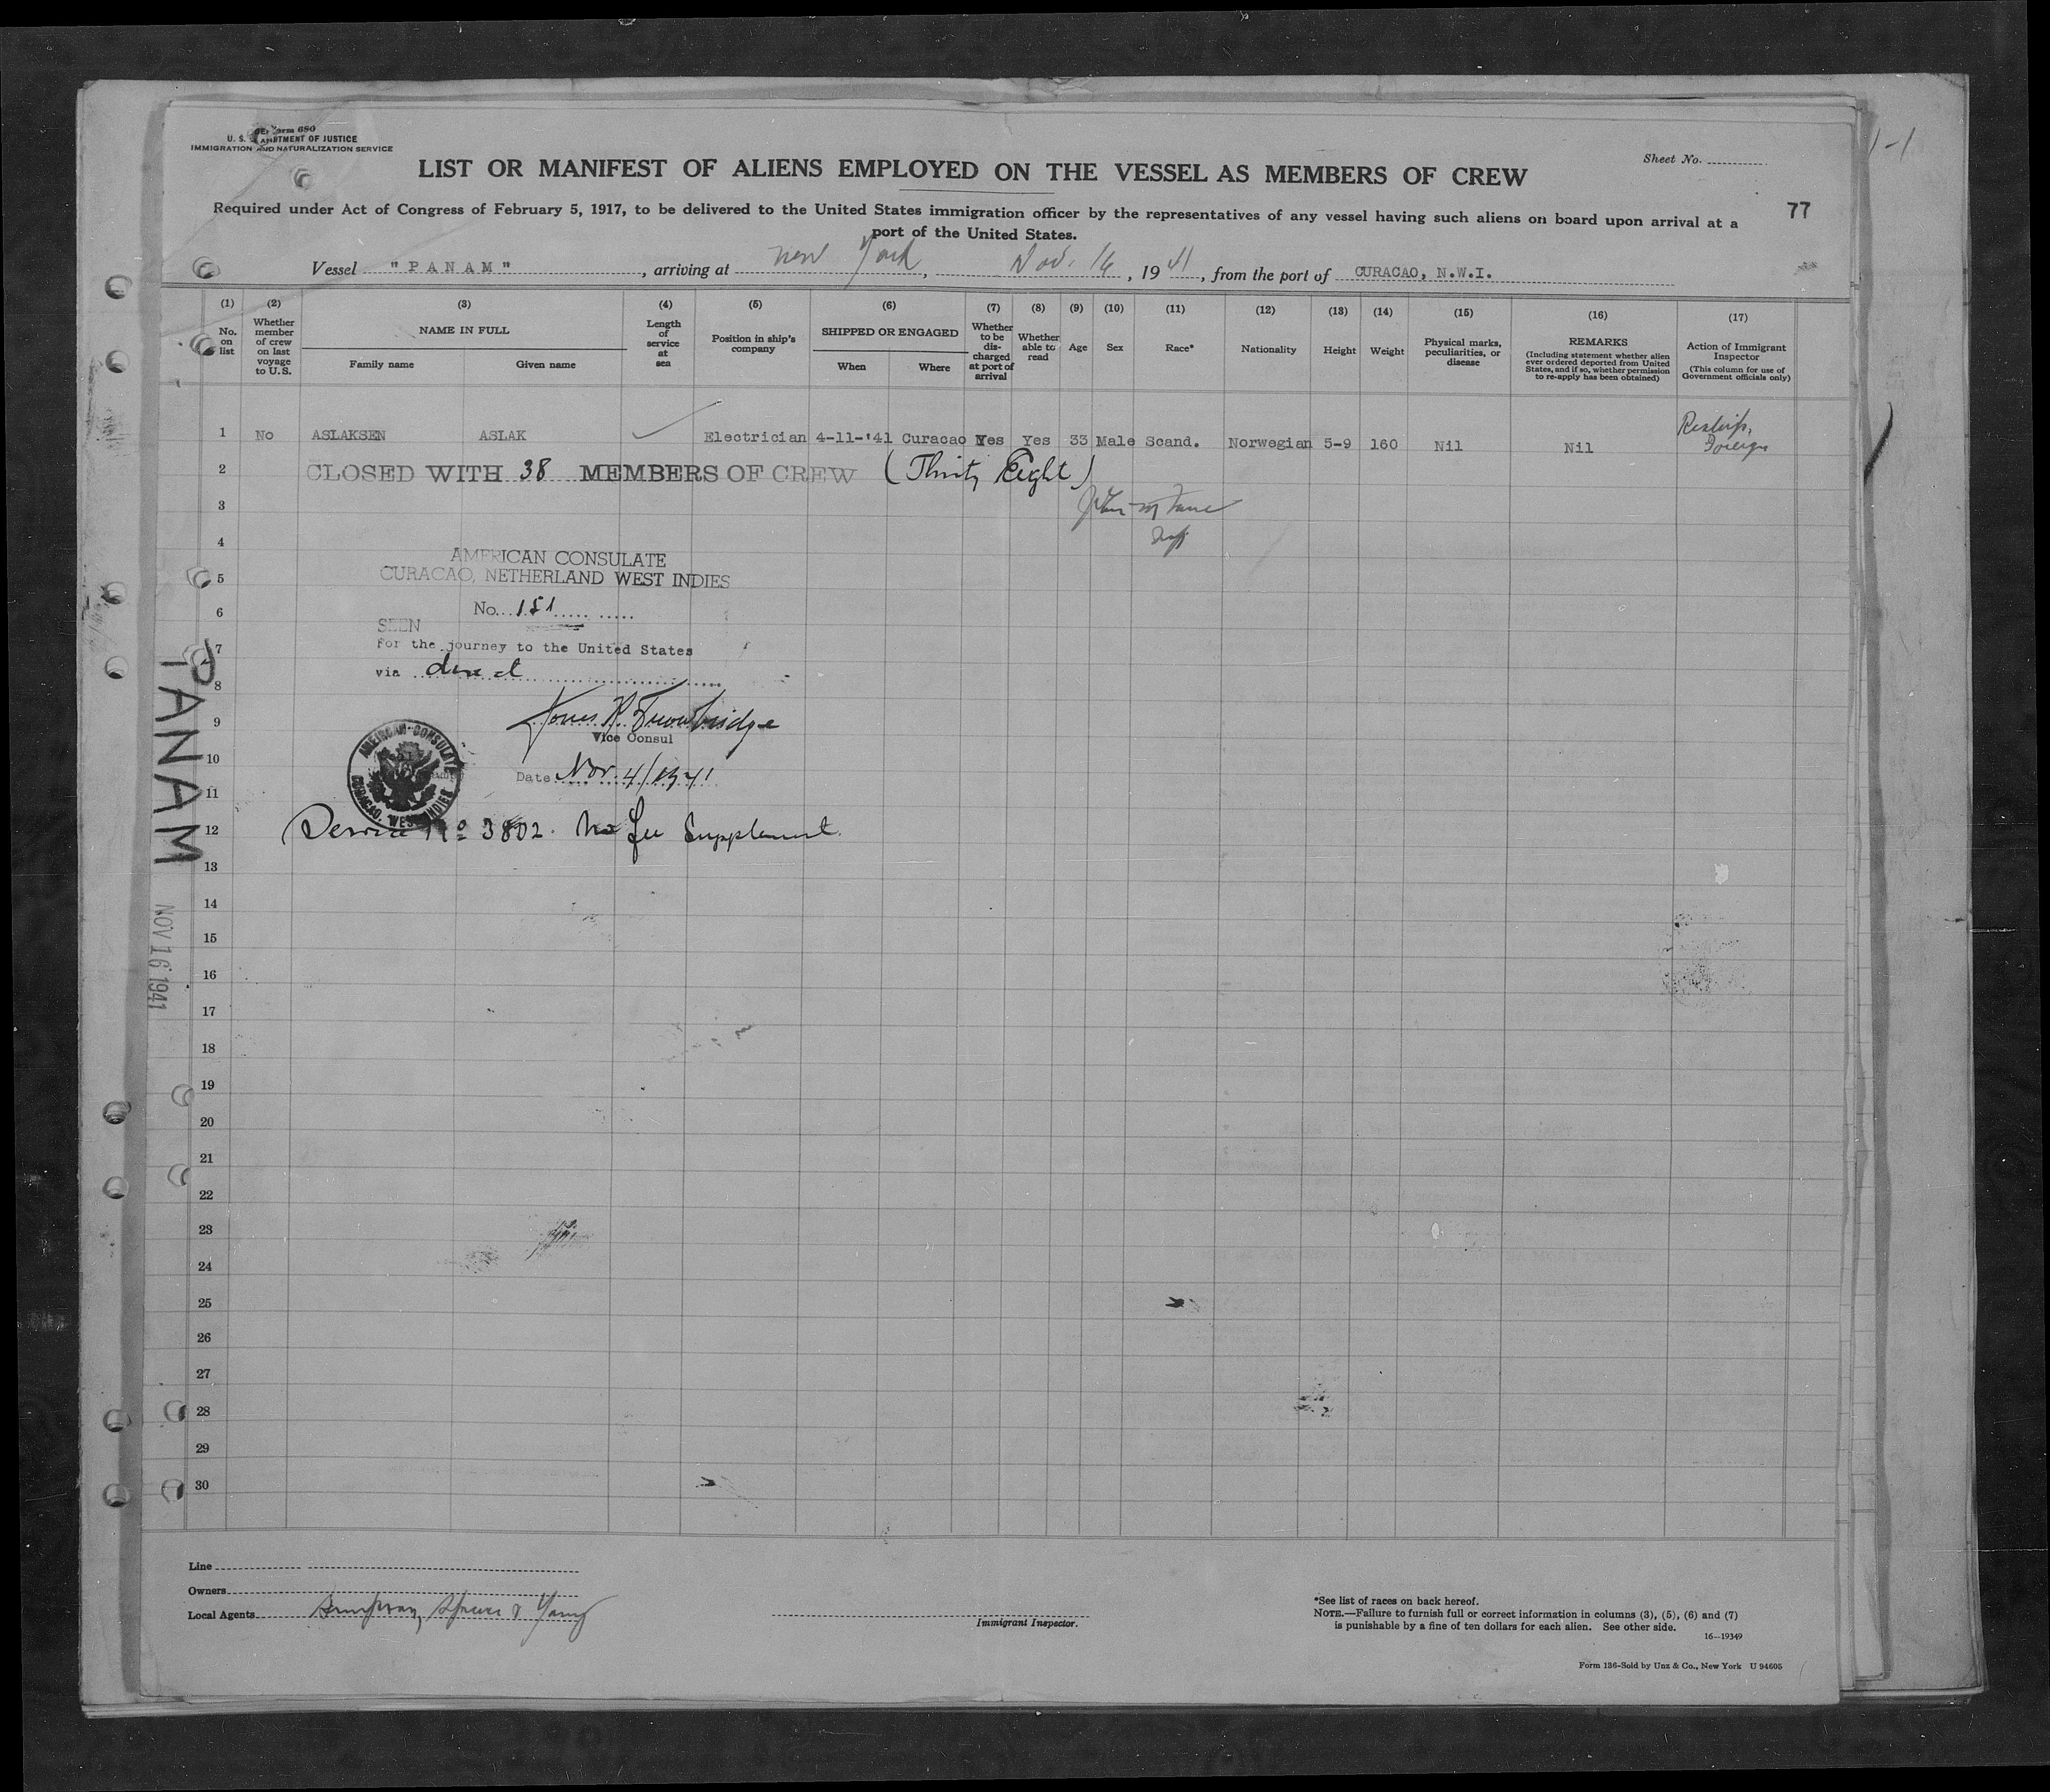 Form 680
U. S. DEPARTMENT OF JUSTICE
IMMIGRATION AND NATURALIZATION SERVICE
Sheet No.
LIST OR MANIFEST OF ALIENS EMPLOYED ON THE VESSEL AS MEMBERS OF CREW
77
Required under Act of Congress of February 5, 1917, to be delivered to the United States immigration officer by the representatives of any vessel having such aliens on board upon arrival at a
port of the United States.
Vessel "PANAM", arriving at New York, Nov. 16, 1941, from the port of CURACAO, N.W.I.
(1) (2) (3) (4) (5) (6) (7) (8) (9) (10) (11) (12) (13) (14) (15) (16) (17)
No. on list
Whether member of crew on last voyage to U.S.
NAME IN FULL
Family name Given name
Length of service at sea
Position in ship's company
SHIPPED OR ENGAGED
When Where
Whether to be discharged at port of arrival
Whether able to read
Age
Sex
Race*
Nationality
Height
Weight
Physical marks, peculiarities, or disease
REMARKS
(Including statement whether alien ever ordered deported from United States, and if so, whether permission to re-apply has been obtained)
Action of Immigrant Inspector
(This column for use of Government officials only)
1 No ASLAKSEN ASLAK Electrician 4-11-'41 Curacao Yes Yes 33 Male Scand. Norwegian 5-9 160 Nil Nil Reship. Foreign
2 CLOSED WITH 38 MEMBERS OF CREW (Thirty Eight)
3
4
AMERICAN CONSULATE
5 CURACAO, NETHERLAND WEST INDIES
6 No. 151
SEEN
7 For the journey to the United States
8 via direct
9 Trowbridge
Vice Consul
10 Date Nov. 4/1941
AMERICAN CONSULATE CURACAO, WEST INDIES
11
12 Service No 3802. No fee Supplement
13
14
15
16
17
18
19
20
21
22
23
24
25
26
27
28
29
30
PANAM
NOV 16 1941
Line
Owners
Local Agents Simpson, Spence & Young
Immigrant Inspector.
*See list of races on back hereof.
NOTE.—Failure to furnish full or correct information in columns (3), (5), (6) and (7)
is punishable by a fine of ten dollars for each alien. See other side.
16—19349
Form 136-Sold by Unz & Co., New York U 94605